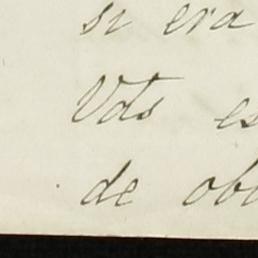 si era
Vds es
de ob